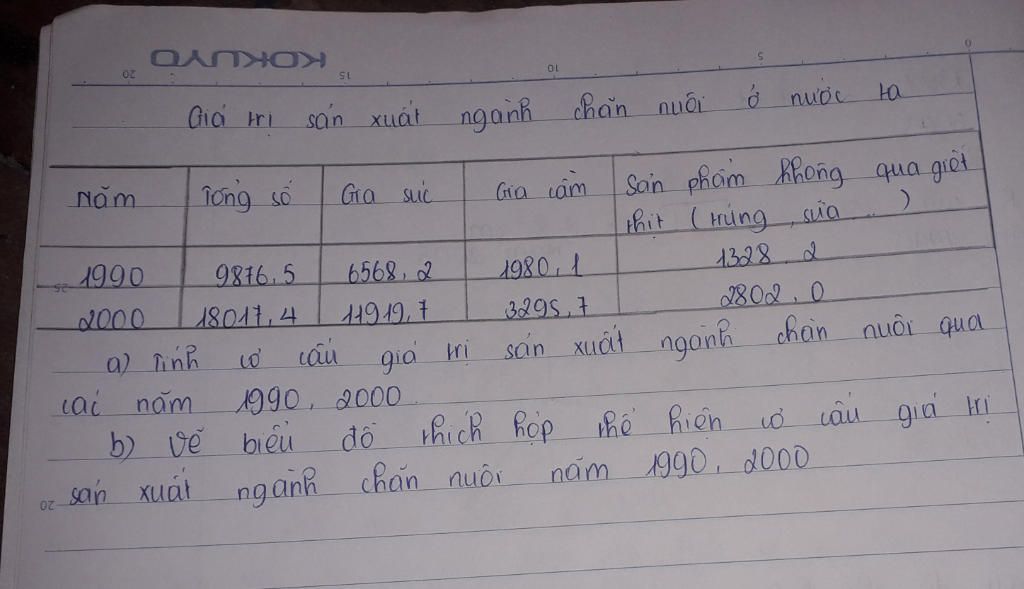 KOKUYO
20 15 10 5 0
Giá trị sản xuất ngành chăn nuôi ở nước ta
Năm Tổng số Gia súc Gia cầm Sản phẩm không qua giết
thịt (trứng, sữa ..)
1990 9876,5 6568,2 1980,1 1328,2
25
2000 18017,4 11919,7 3295,7 2802,0
a) Tính cơ cấu giá trị sản xuất ngành chăn nuôi qua
các năm 1990, 2000.
b) Vẽ biểu đồ thích hợp thể hiện cơ cấu giá trị
sản xuất ngành chăn nuôi năm 1990, 2000
20